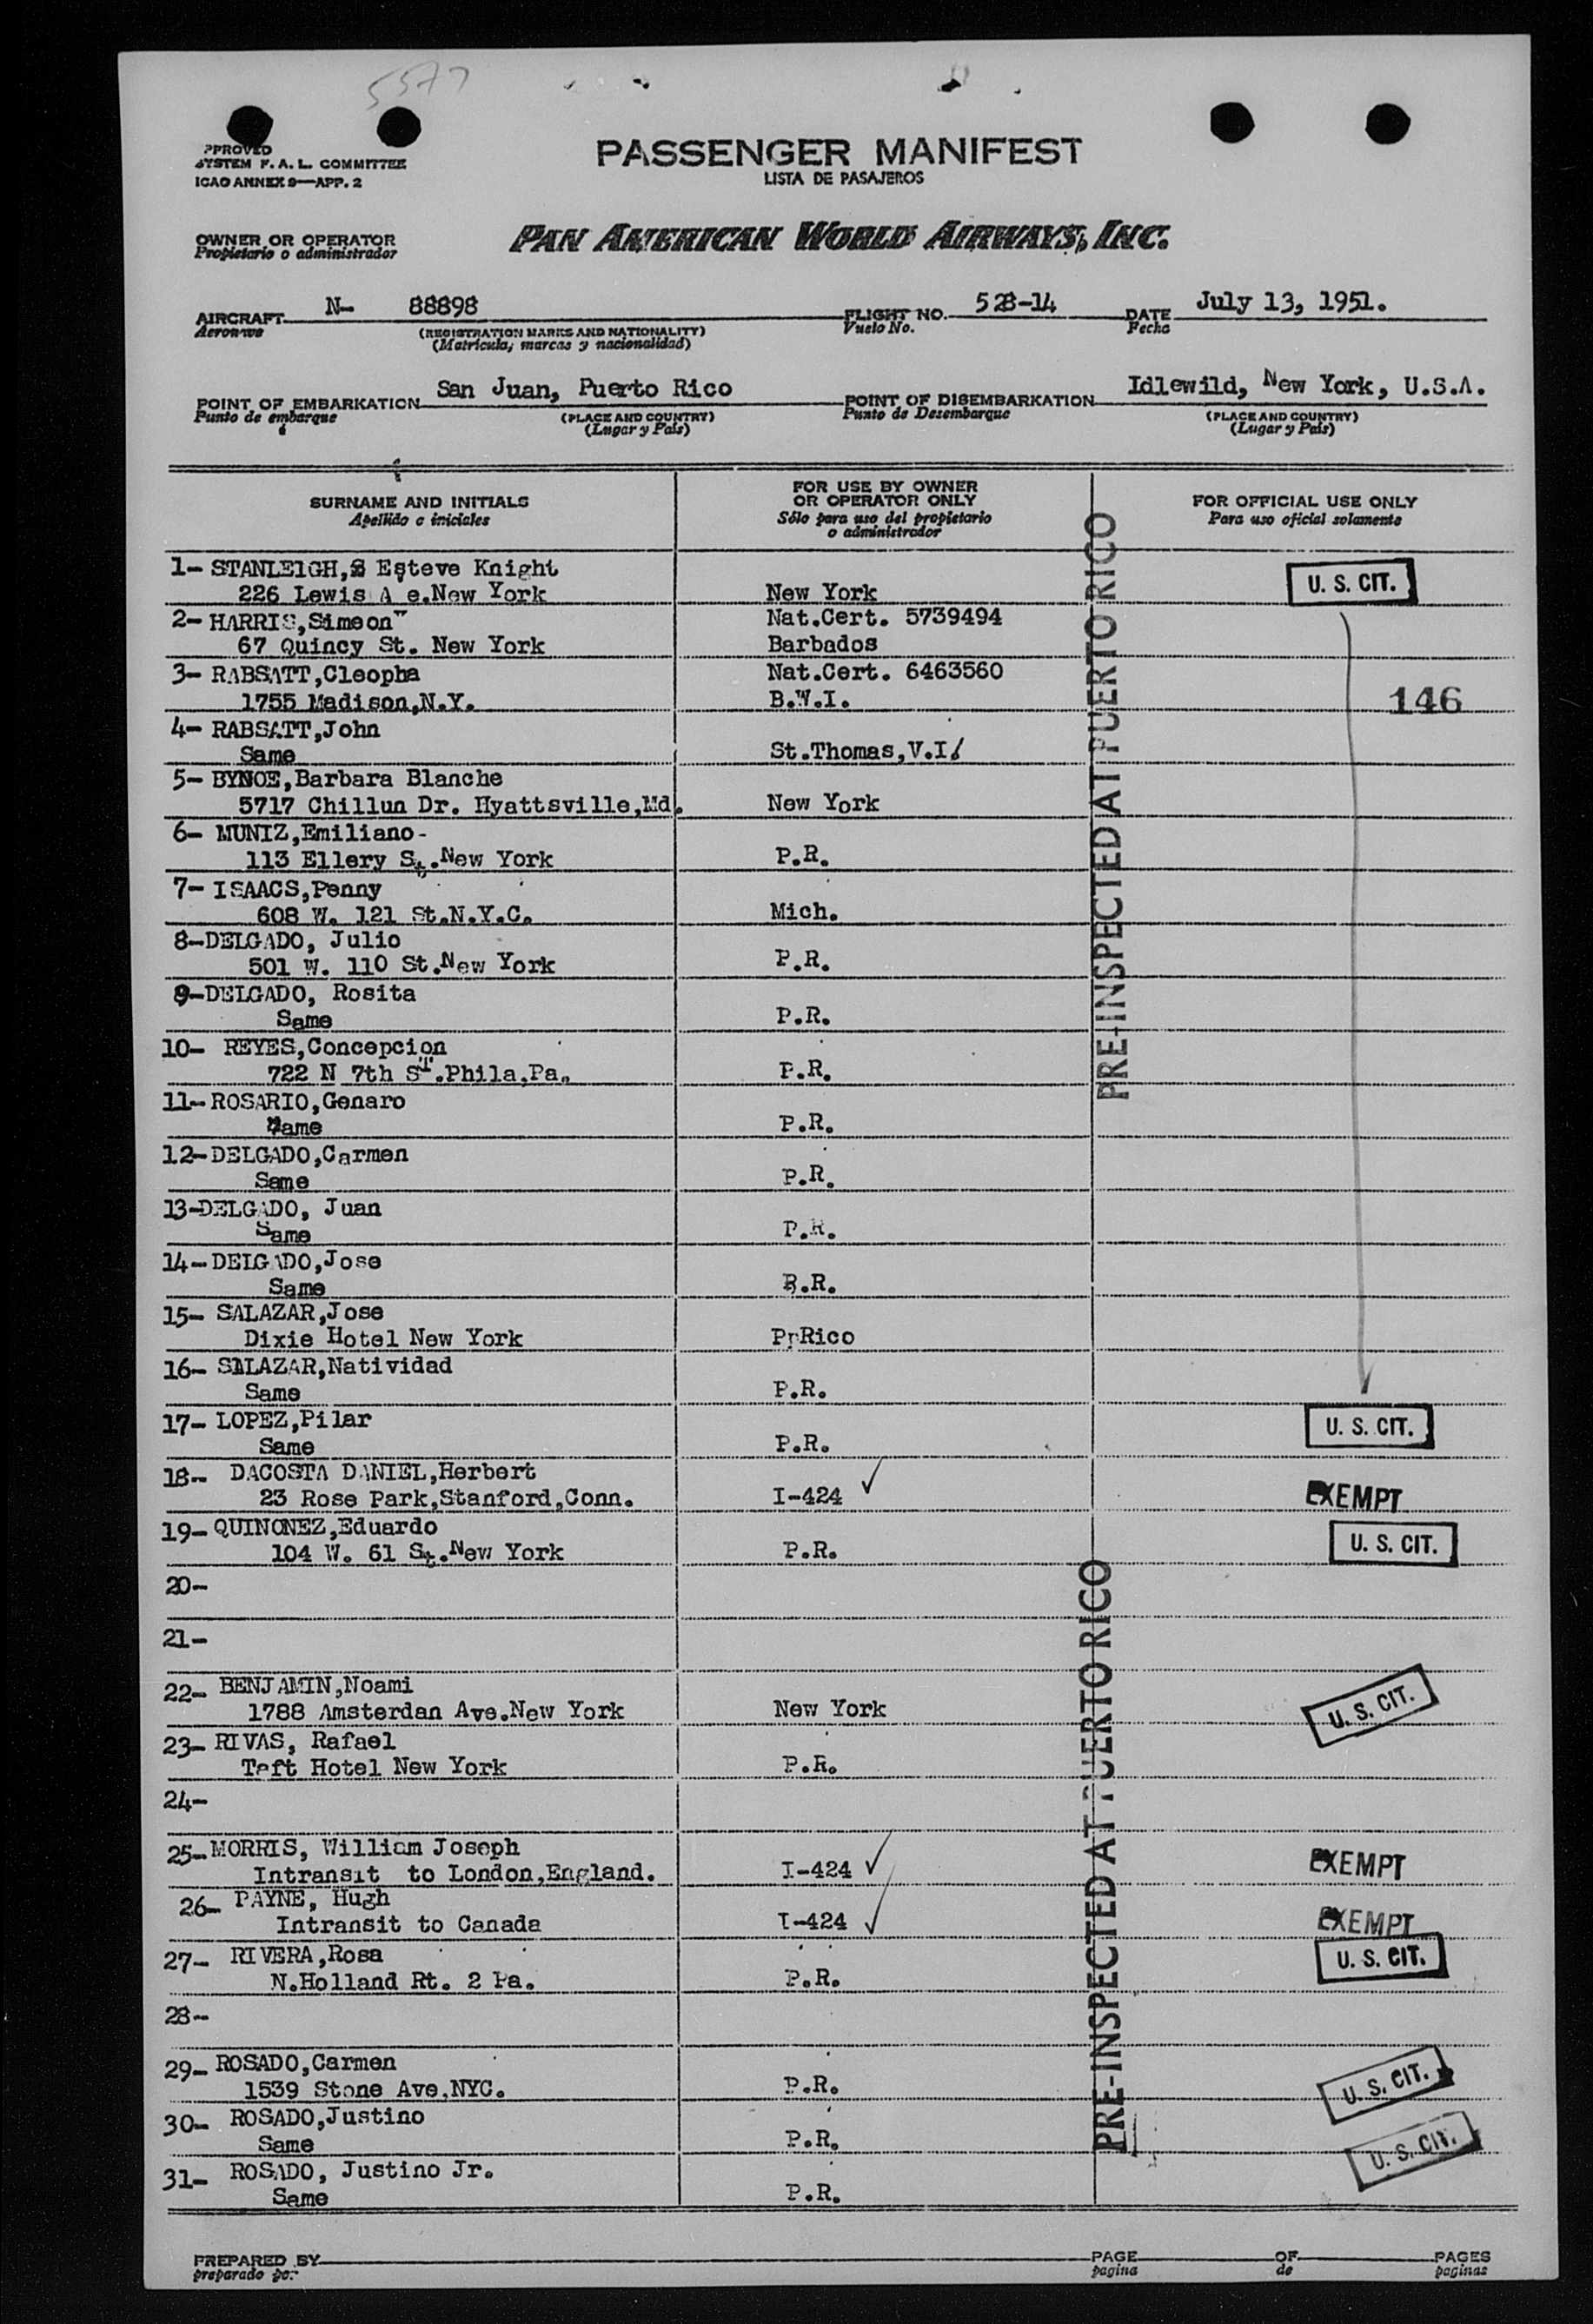 5577
APPROVED
SYSTEM F. A. L. COMMITTEE
ICAO ANNEX 9—APP. 2
PASSENGER MANIFEST
LISTA DE PASAJEROS
OWNER OR OPERATOR
Propietario o administrador
PAN AMERICAN WORLD AIRWAYS, INC.
AIRCRAFT N- 88898 FLIGHT NO. 528-14 DATE July 13, 1951.
Aeronave (REGISTRATION MARKS AND NATIONALITY) Vuelo No. Fecha
(Matricula, marcas y nacionalidad)
POINT OF EMBARKATION San Juan, Puerto Rico POINT OF DISEMBARKATION Idlewild, New York, U.S.A.
Punto de embarque (PLACE AND COUNTRY) Punto de Desembarque (PLACE AND COUNTRY)
(Lugar y País) (Lugar y País)
SURNAME AND INITIALS
Apellido e iniciales
FOR USE BY OWNER
OR OPERATOR ONLY
Sólo para uso del propietario
o administrador
FOR OFFICIAL USE ONLY
Para uso oficial solamente
PRE-INSPECTED AT PUERTO RICO
1- STANLEIGH,S Esteve Knight U. S. CIT.
226 Lewis A e.New York New York
2- HARRIS,Simeon" Nat.Cert. 5739494
67 Quincy St. New York Barbados
3- RABSATT,Cleopha Nat.Cert. 6463560
1755 Madison,N.Y. B.W.I. 146
4- RABSATT,John
Same St.Thomas,V.I.
5- BYNOE,Barbara Blanche
5717 Chillun Dr. Hyattsville,Md. New York
6- MUNIZ,Emiliano-
113 Ellery St.New York P.R.
7- ISAACS,Penny
608 W. 121 St.N.Y.C. Mich.
8-DELGADO, Julio
501 W. 110 St.New York P.R.
9-DELGADO, Rosita
Same P.R.
10- REYES,Concepcion
722 N 7th ST.Phila,Pa. P.R.
11-ROSARIO,Genaro
Same P.R.
12-DELGADO,Carmen
Same P.R.
13-DELGADO, Juan
Same P.R.
14-DELGADO,Jose
Same P.R.
15- SALAZAR,Jose
Dixie Hotel New York PrRico
16- SALAZAR,Natividad
Same P.R.
17- LOPEZ,Pilar U. S. CIT.
Same P.R.
18- DACOSTA DANIEL,Herbert
23 Rose Park,Stanford,Conn. I-424 EXEMPT
19- QUINONEZ,Eduardo U. S. CIT.
104 W. 61 St.New York P.R.
20-
21-
PRE-INSPECTED AT PUERTO RICO
22- BENJAMIN,Noami
1788 Amsterdan Ave.New York New York U. S. CIT.
23- RIVAS, Rafael
Taft Hotel New York P.R.
24-
25-MORRIS, William Joseph EXEMPT
Intransit to London,England. I-424
26- PAYNE, Hugh
Intransit to Canada I-424 EXEMPT
27- RIVERA,Rosa U. S. CIT.
N.Holland Rt. 2 Pa. P.R.
28-
29- ROSADO,Carmen
1539 Stone Ave,NYC. P.R. U. S. CIT.
30- ROSADO,Justino
Same P.R. U. S. CIT.
31- ROSADO, Justino Jr.
Same P.R.
PREPARED BY PAGE OF PAGES
preparado por pagina de paginas